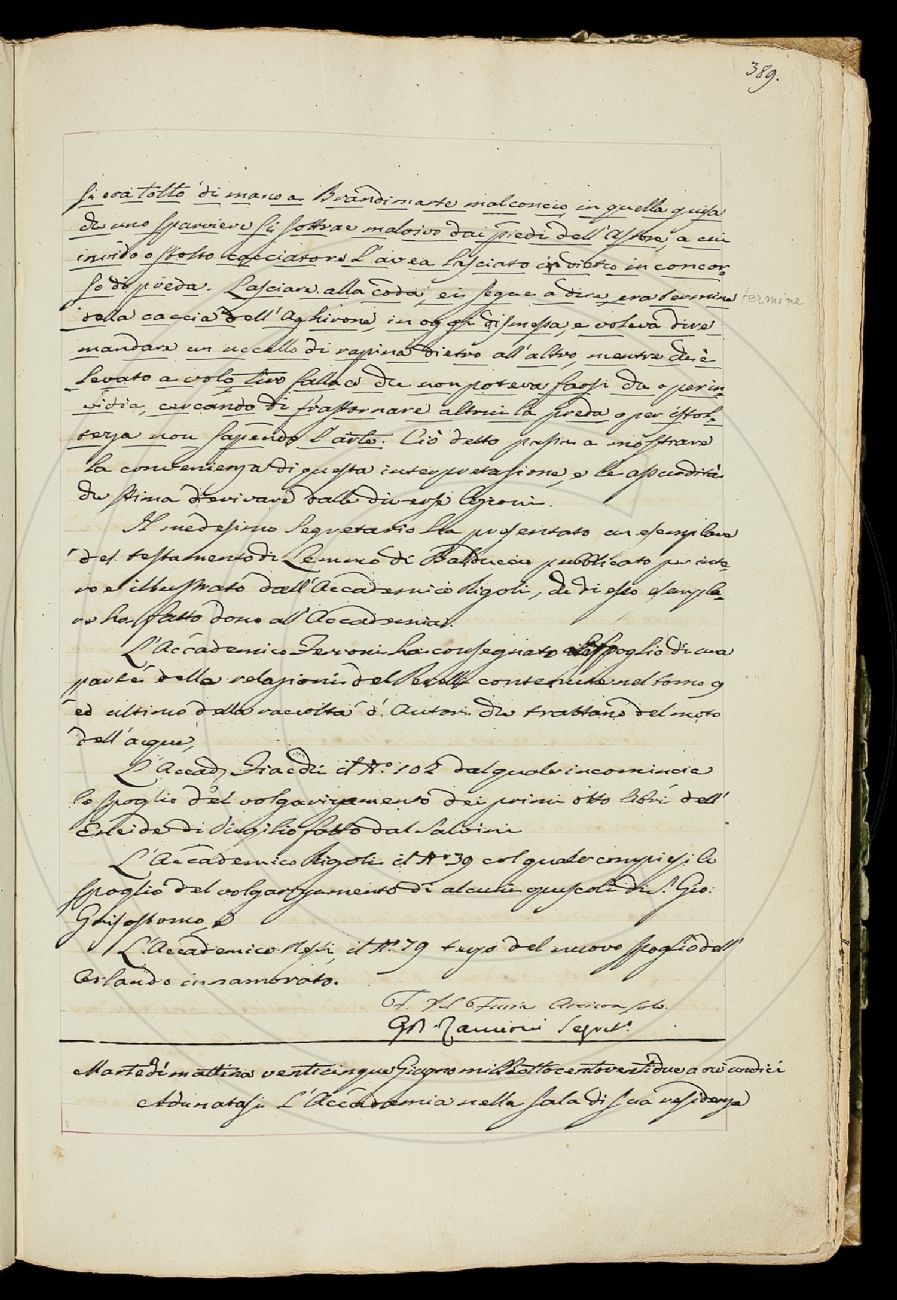 389.
si era tolto di mano a Brandimarte malconcio, in quella guisa
che uno sparviere si sottrae malvivo dai piedi dell'Astore, a cui
invido o stolto cacciatore l'avea lasciato in dietro in concor-
so di preda. Lasciare alla coda, ei segue a dire, era termine termine
della caccia dell'Aghirone, in oggi dismessa, e voleva dire
mandare un uccello di rapina dietro all'altro, mentre che è
levato a volo, tiro fallace che non poteva farsi che o per in-
vidia, cercando di frastornare altrui la preda o per istol-
tezza non sapendo l'arte. Ciò detto passa a mostrare
la convenienza di questa interpretazione, e le assurdità
che stima derivare dalle diverse lezioni.
Il medesimo Segretario ha presentato un esemplare
del testamento di Lemmo di Balduccio pubblicato per inte-
ro e illustrato dall'Accademico Rigoli, che di esso esempla-
re ha fatto dono all'Accademia.
L'Accademico Ferroni ha consegnato lo spoglio di una
parte della relazioni del Perelli contenute nel tomo 9
ed ultimo della raccolta d'Autori che trattano del moto
dell'acque,
L'Accad. Fiacchi il N.º 102 dal quale incomincia
lo spoglio del volgarizzamento dei primi otto libri dell'
Eneide di Virgilio fatto dal Salvini
L'Accademico Rigoli il N.º 39 col quale compiesi lo
spoglio del volgarizzamento di alcuni opuscoli di S. Gio:
Grisostomo, e
L'Accademico Nesti, il N.º 79 terzo del nuovo spoglio dell'
Orlando innamorato.
F. del Furia Arciconsolo.
GB. Zannoni Segret.º
Martedì mattina venticinque Giugno mille ottocentoventidue a ore undici
Adunatasi l'Accademia nella sala di sua residenza